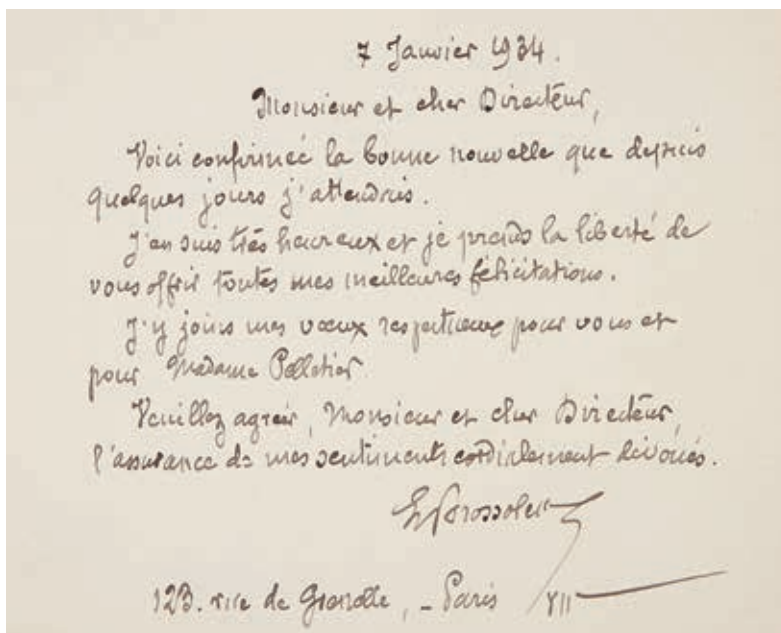 7 Janvier 1934.
Monsieur et cher Directeur,
Voici confirmée la bonne nouvelle que depuis
quelques jours j'attendais.
J'en suis très heureux et je prends la liberté de
vous offrir toutes mes meilleures félicitations.
J'y joins mes vœux respectueux pour vous et
pour Madame Pelletier
Veuillez agréer, Monsieur et cher Directeur,
l'assurance de mes sentiments cordialement dévoués.
Brossolette
123. rue de Grenelle, - Paris VII